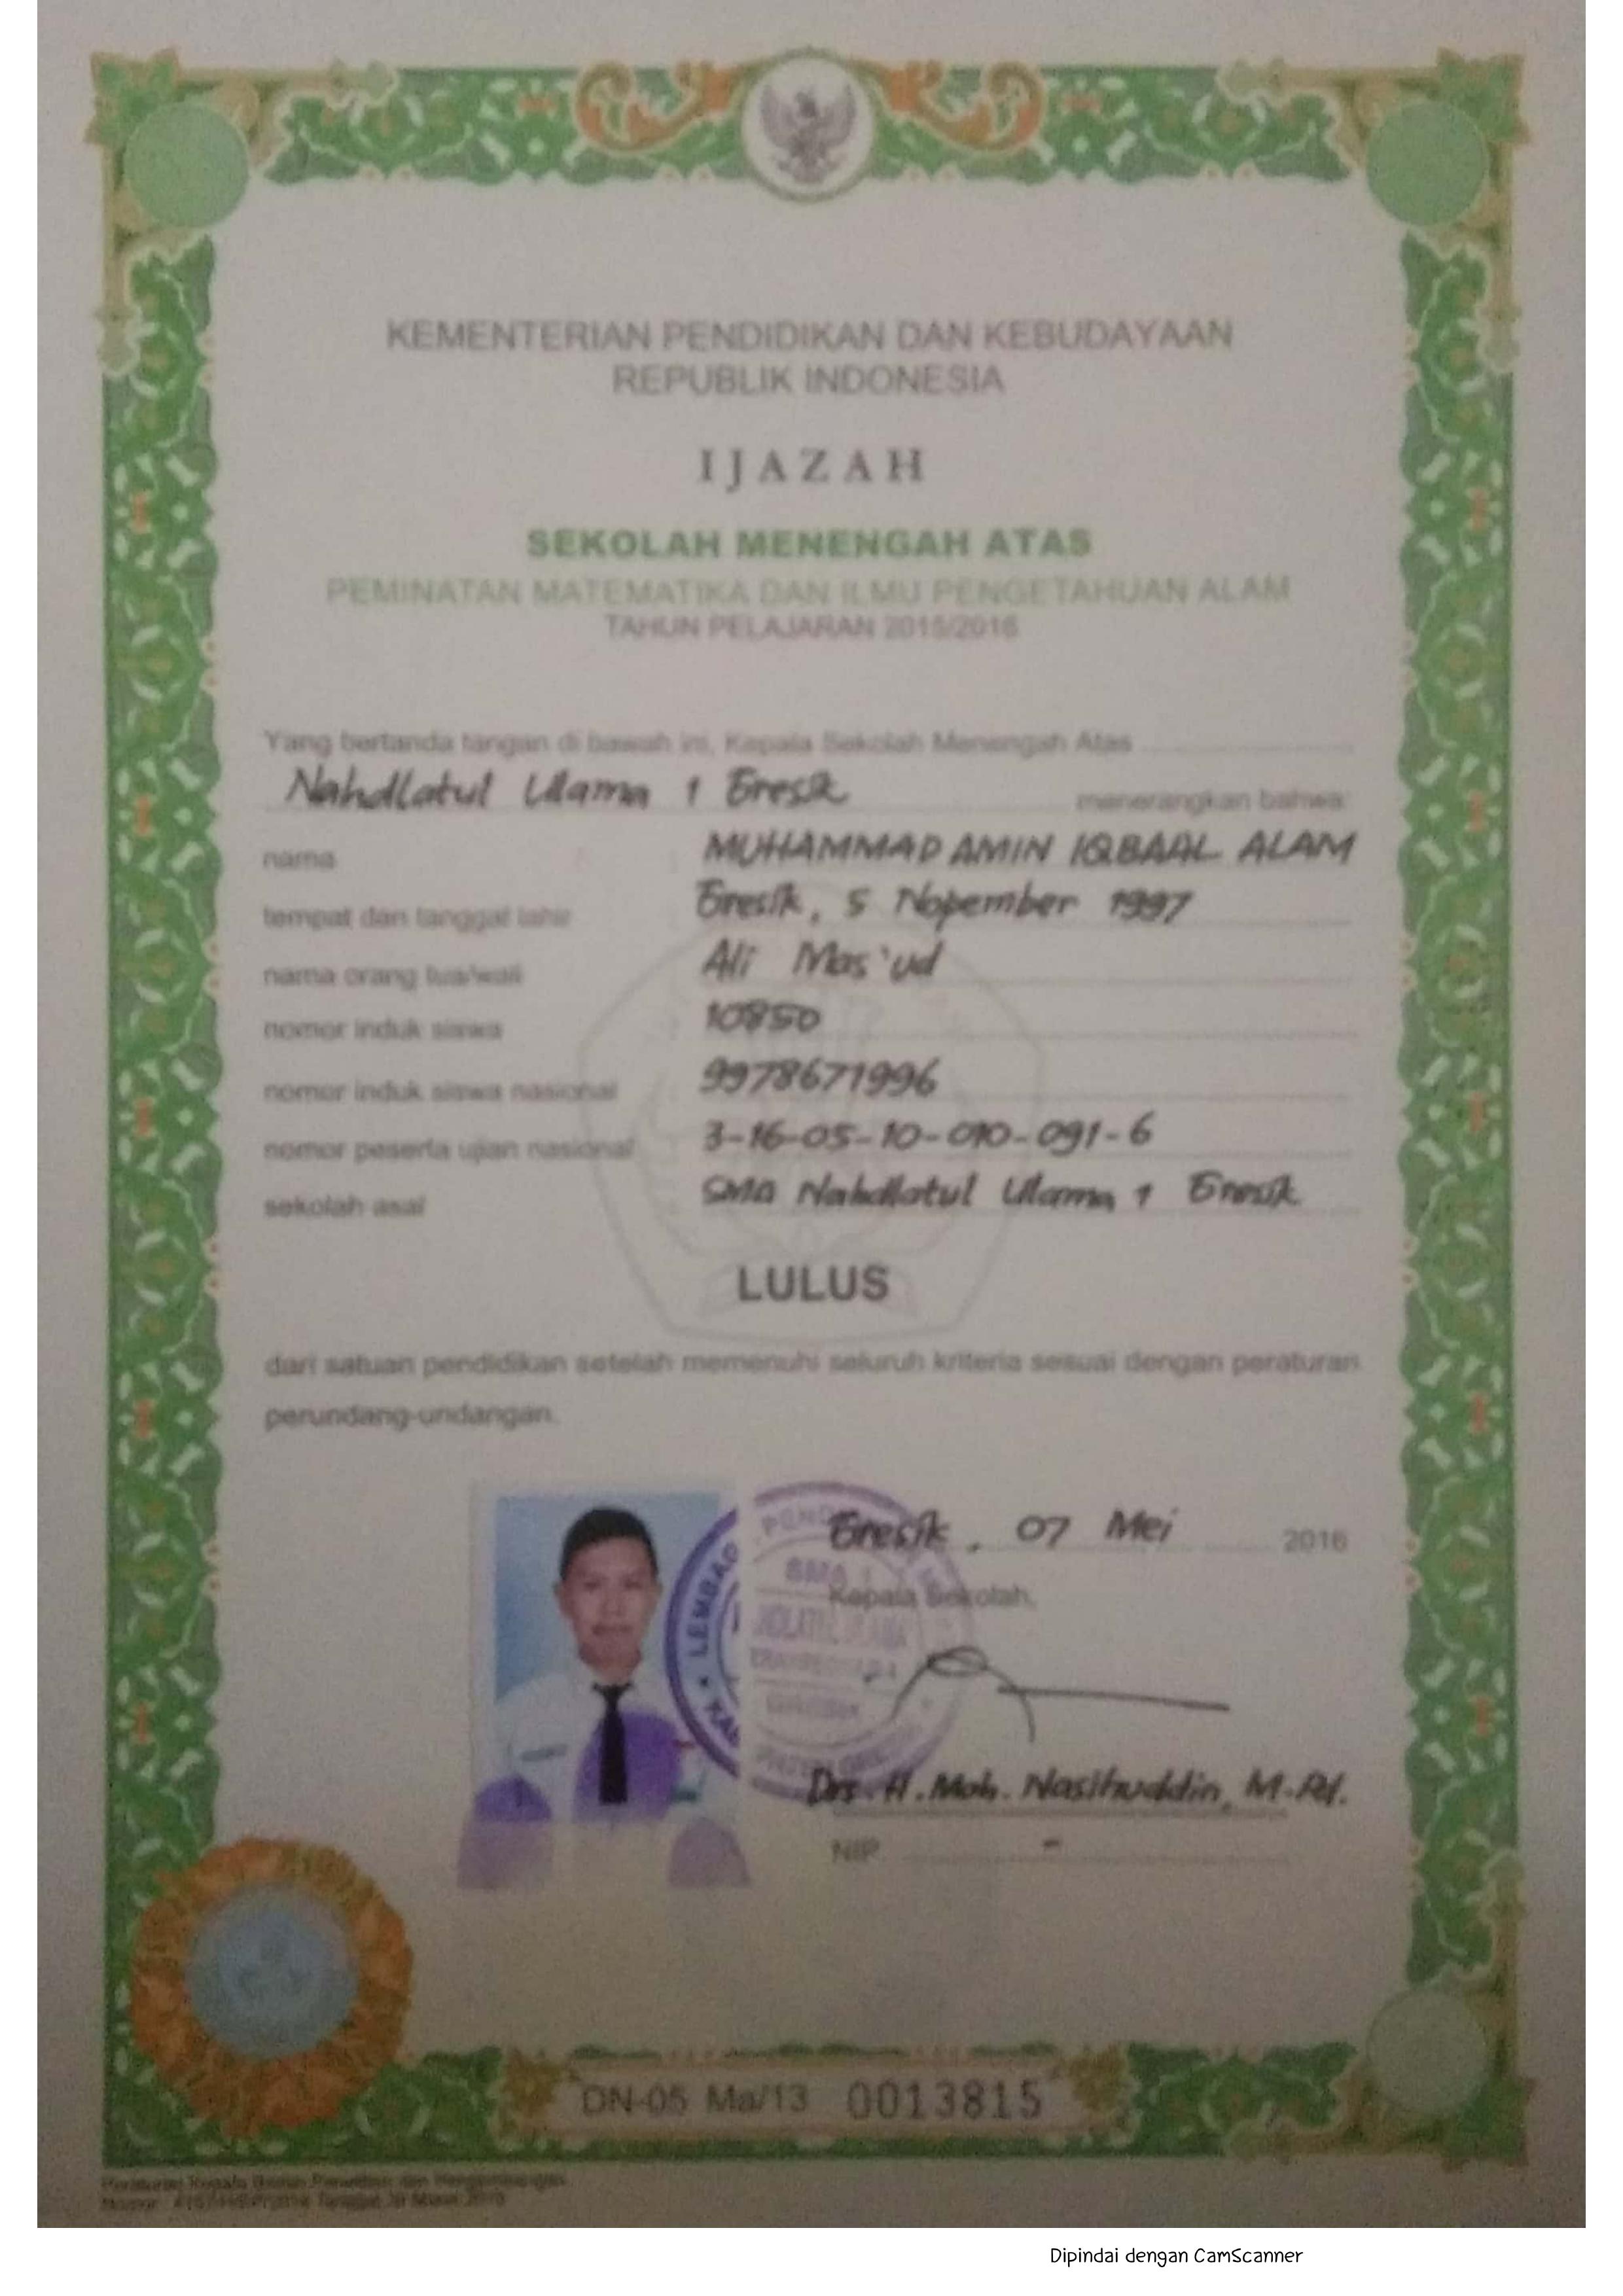 KEMENTERIAN PENDIDIKAN DAN KEBUDAYAAN
REPUBLIK INDONESIA
IJAZAH
SEKOLAH MENENGAH ATAS
PEMINATAN MATEMATIKA DAN ILMU PENGETAHUAN ALAM
TAHUN PELAJARAN 2015/2016
Yang bertanda tangan di bawah ini, Kepala Sekolah Menengah Atas
Nahdlatul Ulama 1 Gresik menerangkan bahwa:
nama : MUHAMMAD AMIN IQBAAL ALAM
tempat dan tanggal lahir : Gresik, 5 Nopember 1997
nama orang tua/wali : Ali Mas'ud
nomor induk siswa : 10850
nomor induk siswa nasional : 9978671996
nomor peserta ujian nasional : 3-16-05-10-010-091-6
sekolah asal : SMA Nahdlatul Ulama 1 Gresik
LULUS
dari satuan pendidikan setelah memenuhi seluruh kriteria sesuai dengan peraturan
perundang-undangan.
Gresik, 07 Mei 2016
Kepala Sekolah,
Drs. H. Moh. Nasihuddin, M.Pd.
NIP. -
DN-05 Ma/13 0013815
Dipindai dengan CamScanner